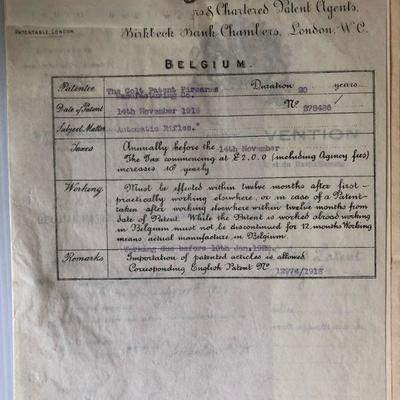 rs & Chartered Patent Agents,
Birkbeck Bank Chambers, London, W.C.
PATENTABLE, LONDON.
BELGIUM.
Patentee The Colt Patent Firearms Manufacturing Co. Duration 20 years.
Date of Patent 14th November 1918 No. 278486
Subject Matter "Automatic Rifles."
Taxes Annually before the 14th November
The Tax commencing at £2.0.0 (including Agency fees)
increases 10/- yearly
VENTION
Working Must be effected within twelve months after first
practically working elsewhere, or in case of a Patent
taken after working elsewhere within twelve months from
date of Patent. While the Patent is worked abroad working
in Belgium must not be discontinued for 12 months. Working
means actual manufacture in Belgium.
Working due before 10th Jan.
Remarks Importation of patented articles is allowed
Corresponding English Patent No. 12974/1918